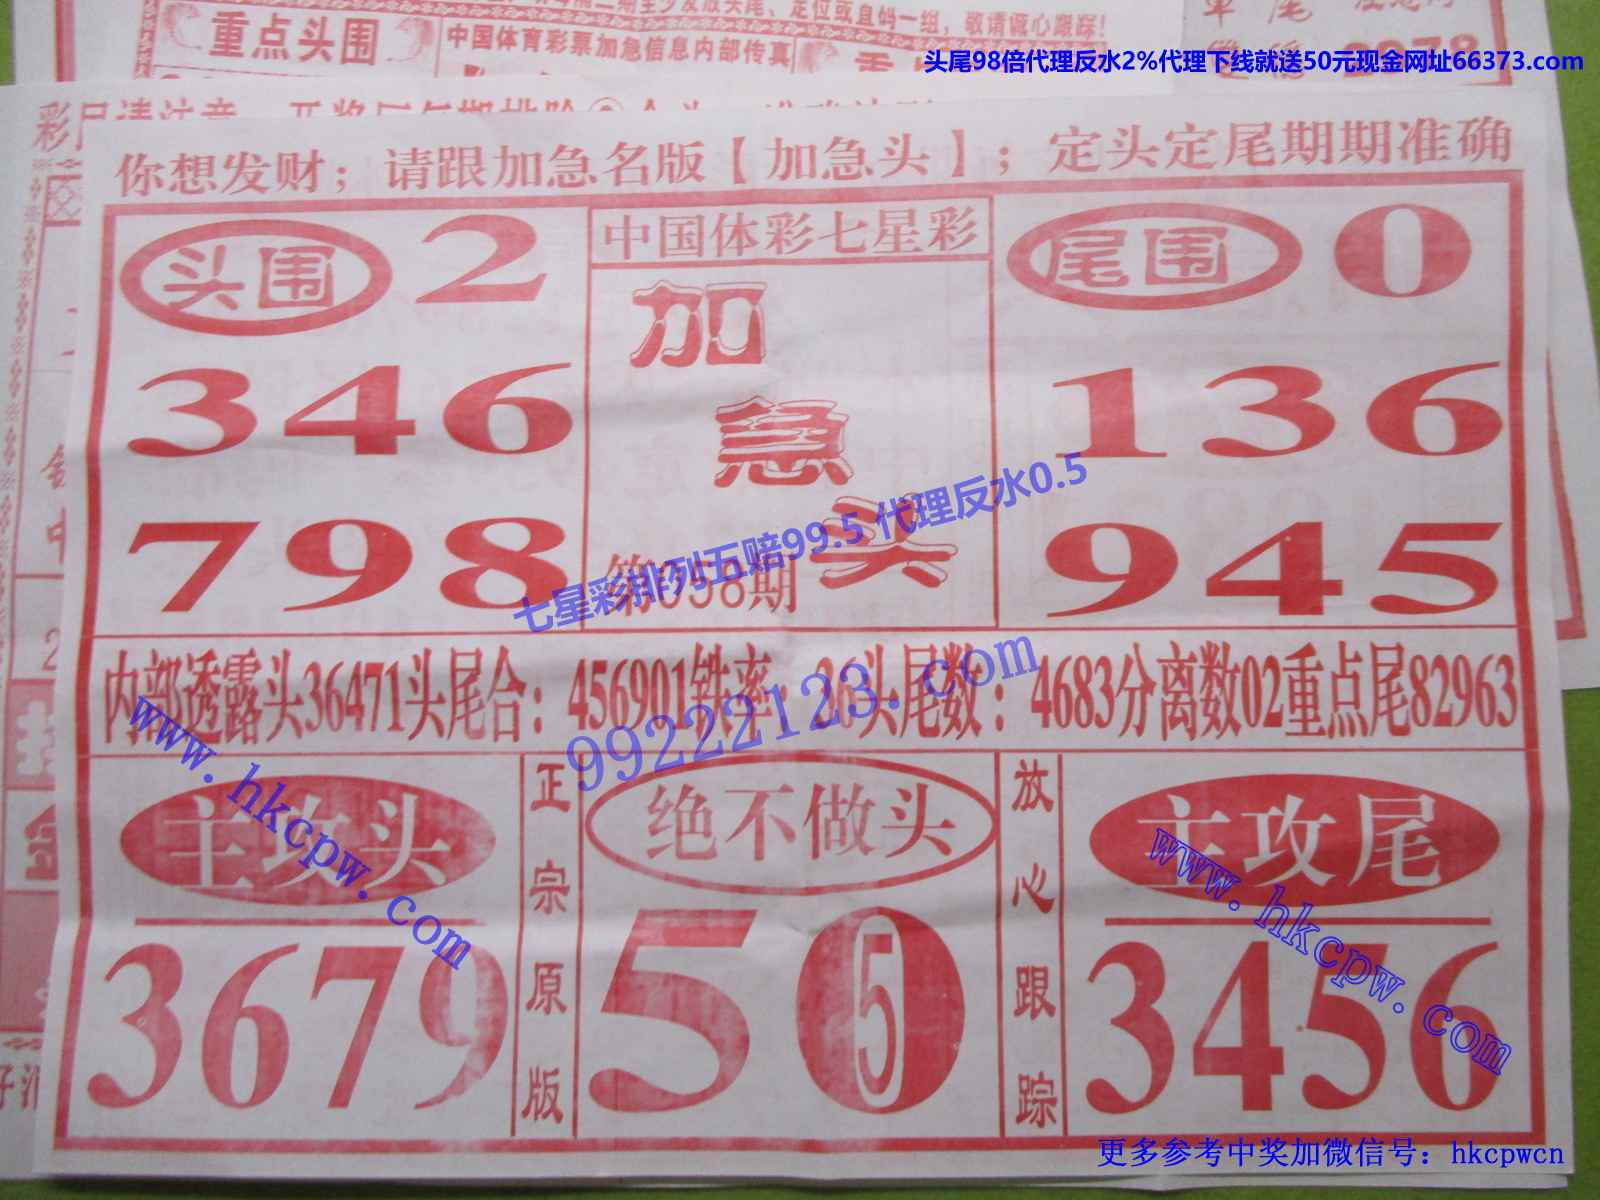 重点头围
中国体育彩票加急信息内部传真
头尾98倍代理反水2%代理下线就送50元现金网址66373.com
你想发财；请跟加急名版【加急头】；定头定尾期期准确
头围 2
346
798
中国体彩七星彩
加急头
第058期
尾围 0
136
945
七星彩排列五赔99.5 代理反水0.5
内部透露头36471头尾合：456901铁率：26头尾数：4683分离数02重点尾82963
99222123.com
主攻头
3679
www.hkcpw.com
正宗原版
绝不做头
50
5
放心跟踪
主攻尾
3456
www.hkcpw.com
更多参考中奖加微信号：hkcpwcn